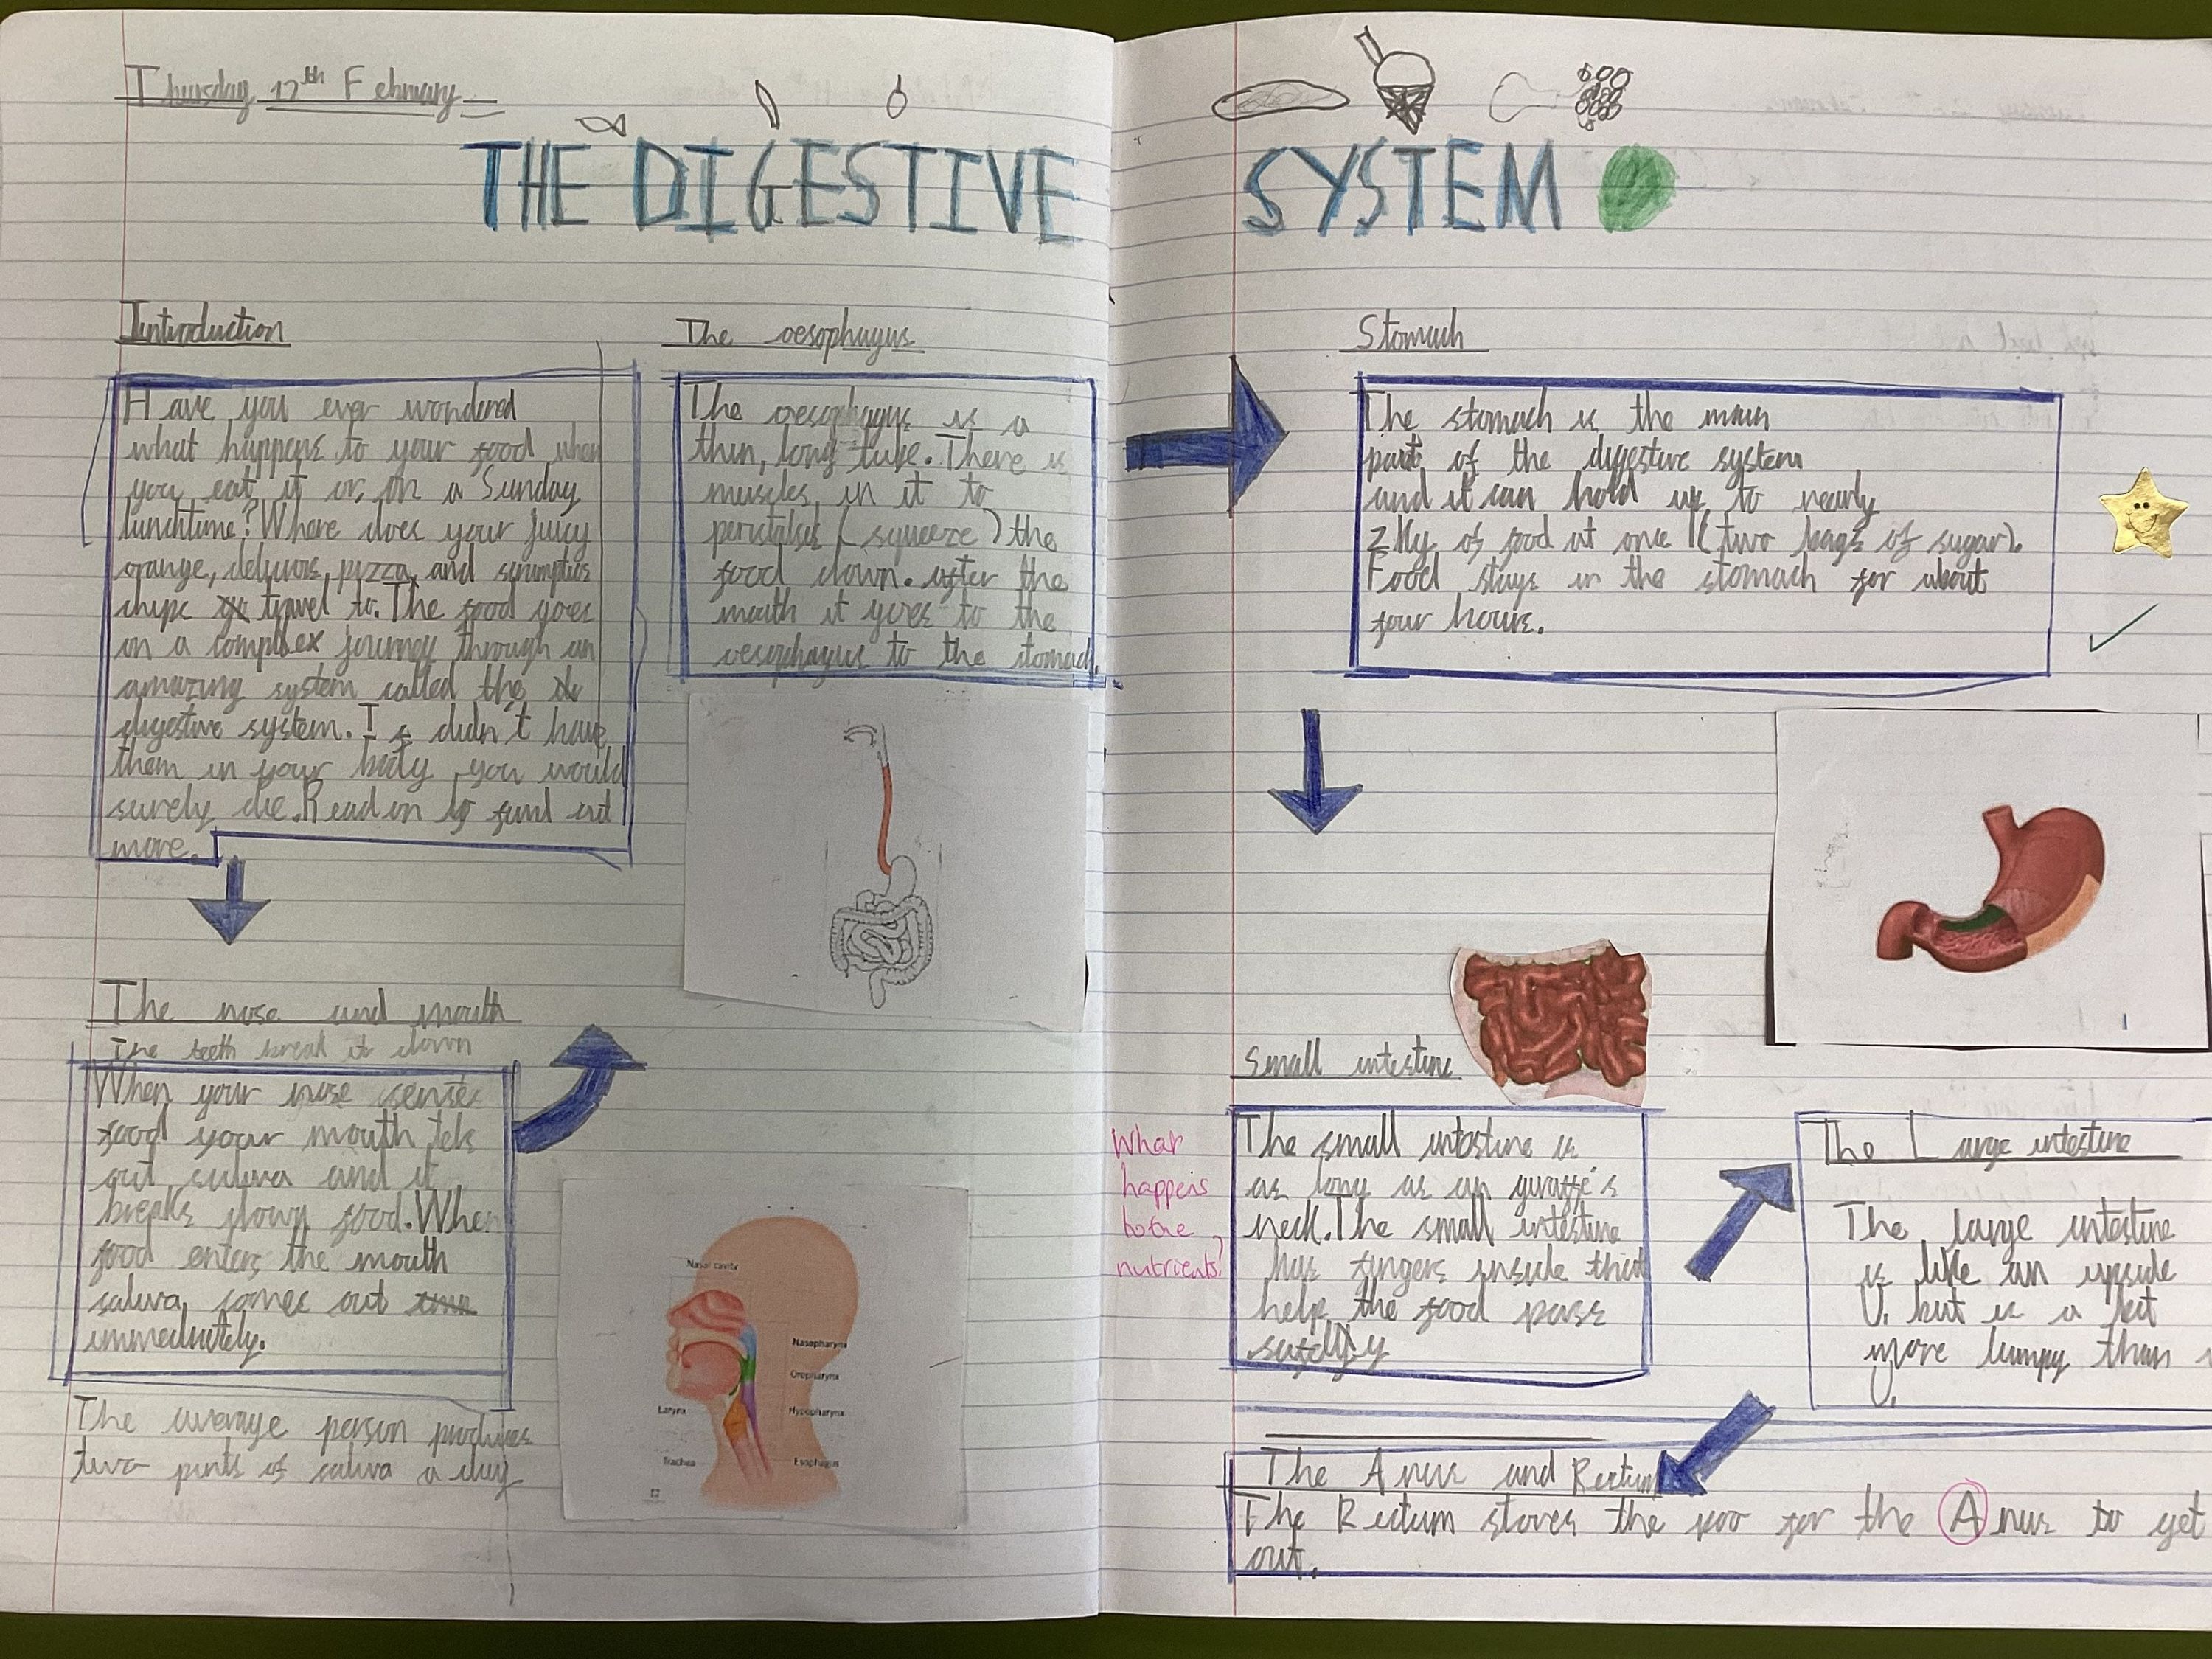 Thursday 12th February
THE DIGESTIVE SYSTEM
Introduction
Have you ever wondered
what happens to your food when
you eat it or, on a Sunday
lunchtime? Where does your juicy
orange, pizza, and
chips travel to. The food goes
on a complex journey through an
amazing system called the
digestive system. I f didn't have
them in your body you would
surely die. Read on to find out
more.
The nose and mouth
The teeth break it down
When your nose
food your mouth lets
out saliva and it
breaks down food. When
food enters the mouth
saliva comes out
The average person produces
two pints of saliva a day
The oesophagus
The oesophagus is a
thin, long tube. There is
muscles in it to
(squeeze) the
food down. after the
mouth it goes to the
oesophagus to the stomach.
Nasal cavity
Nasopharynx
Oropharynx
Larynx
Hypopharynx
Trachea
Esophagus
Stomach
The stomach is the main
part of the digestive system
and it can hold up to nearly
2 Kg of food at once (two bags of sugar).
Food stays in the stomach for about
four hours.
Small intestine
The small intestine is
as long as an giraffe's
neck. The small intestine
has fingers inside that
help the food pass
What
happens
to the
nutrients?
The Large intestine
The large intestine
is like an upside
U, but is a bit
more lumpy than
U.
The Anus and Rectum
The Rectum stores the poo for the Anus to get
out.